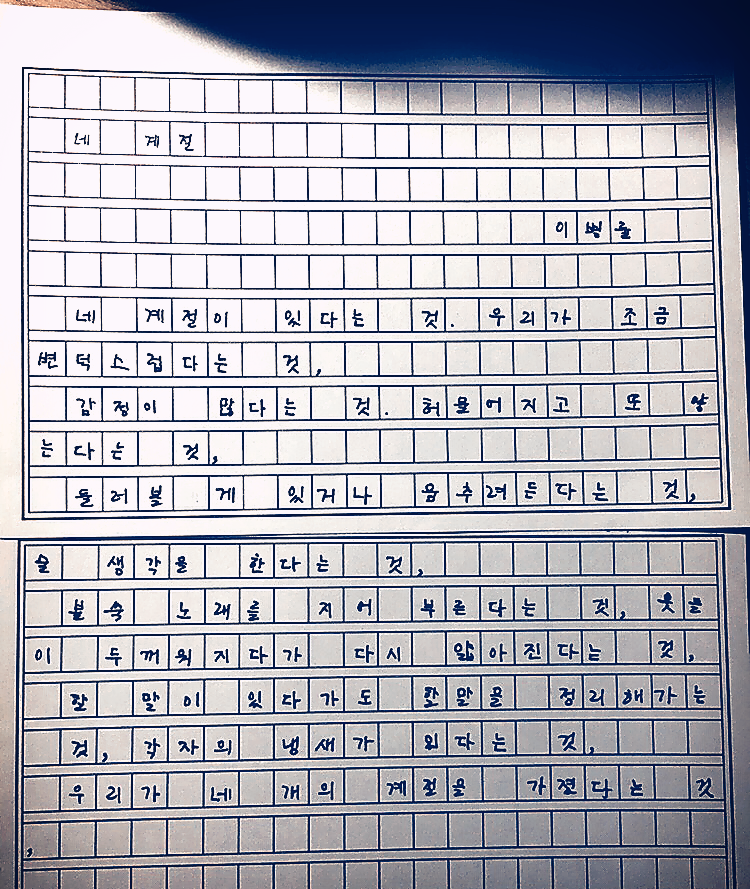 네 계절
이병률
네 계절이 있다는 것. 우리가 조금
변덕스럽다는 것,
감정이 많다는 것. 허물어지고 또 쌓
는다는 것,
둘러볼 게 있거나 움추려든다는 것,
술 생각을 한다는 것,
불쑥 노래를 지어 부른다는 것, 옷들
이 두꺼워지다가 다시 얇아진다는 것,
할 말이 있다가도 할말을 정리해가는
것, 각자의 냄새가 있다는 것,
우리가 네 개의 계절을 가졌다는 것
,